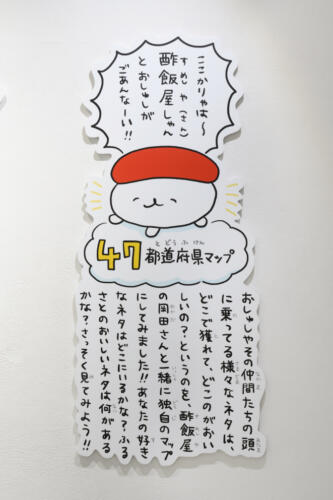 ここからりゃは〜
酢飯屋しゃん
すめしや(さん)
とおしゅしが
ごあんなーい!!
47都道府県マップ
とどうふけん
おしゅしやその仲間たちの頭
なかま
あたま
に乗ってる様々なネタは、
どこで獲れて、どこのがおい
しいの?というのを、酢飯屋
の岡田さんと一緒に独自のマップ
にしてみました!!あなたの好き
なネタはどこにいるかな?ふる
さとのおいしいネタは何がある
かな?さっそく見てみよう!!